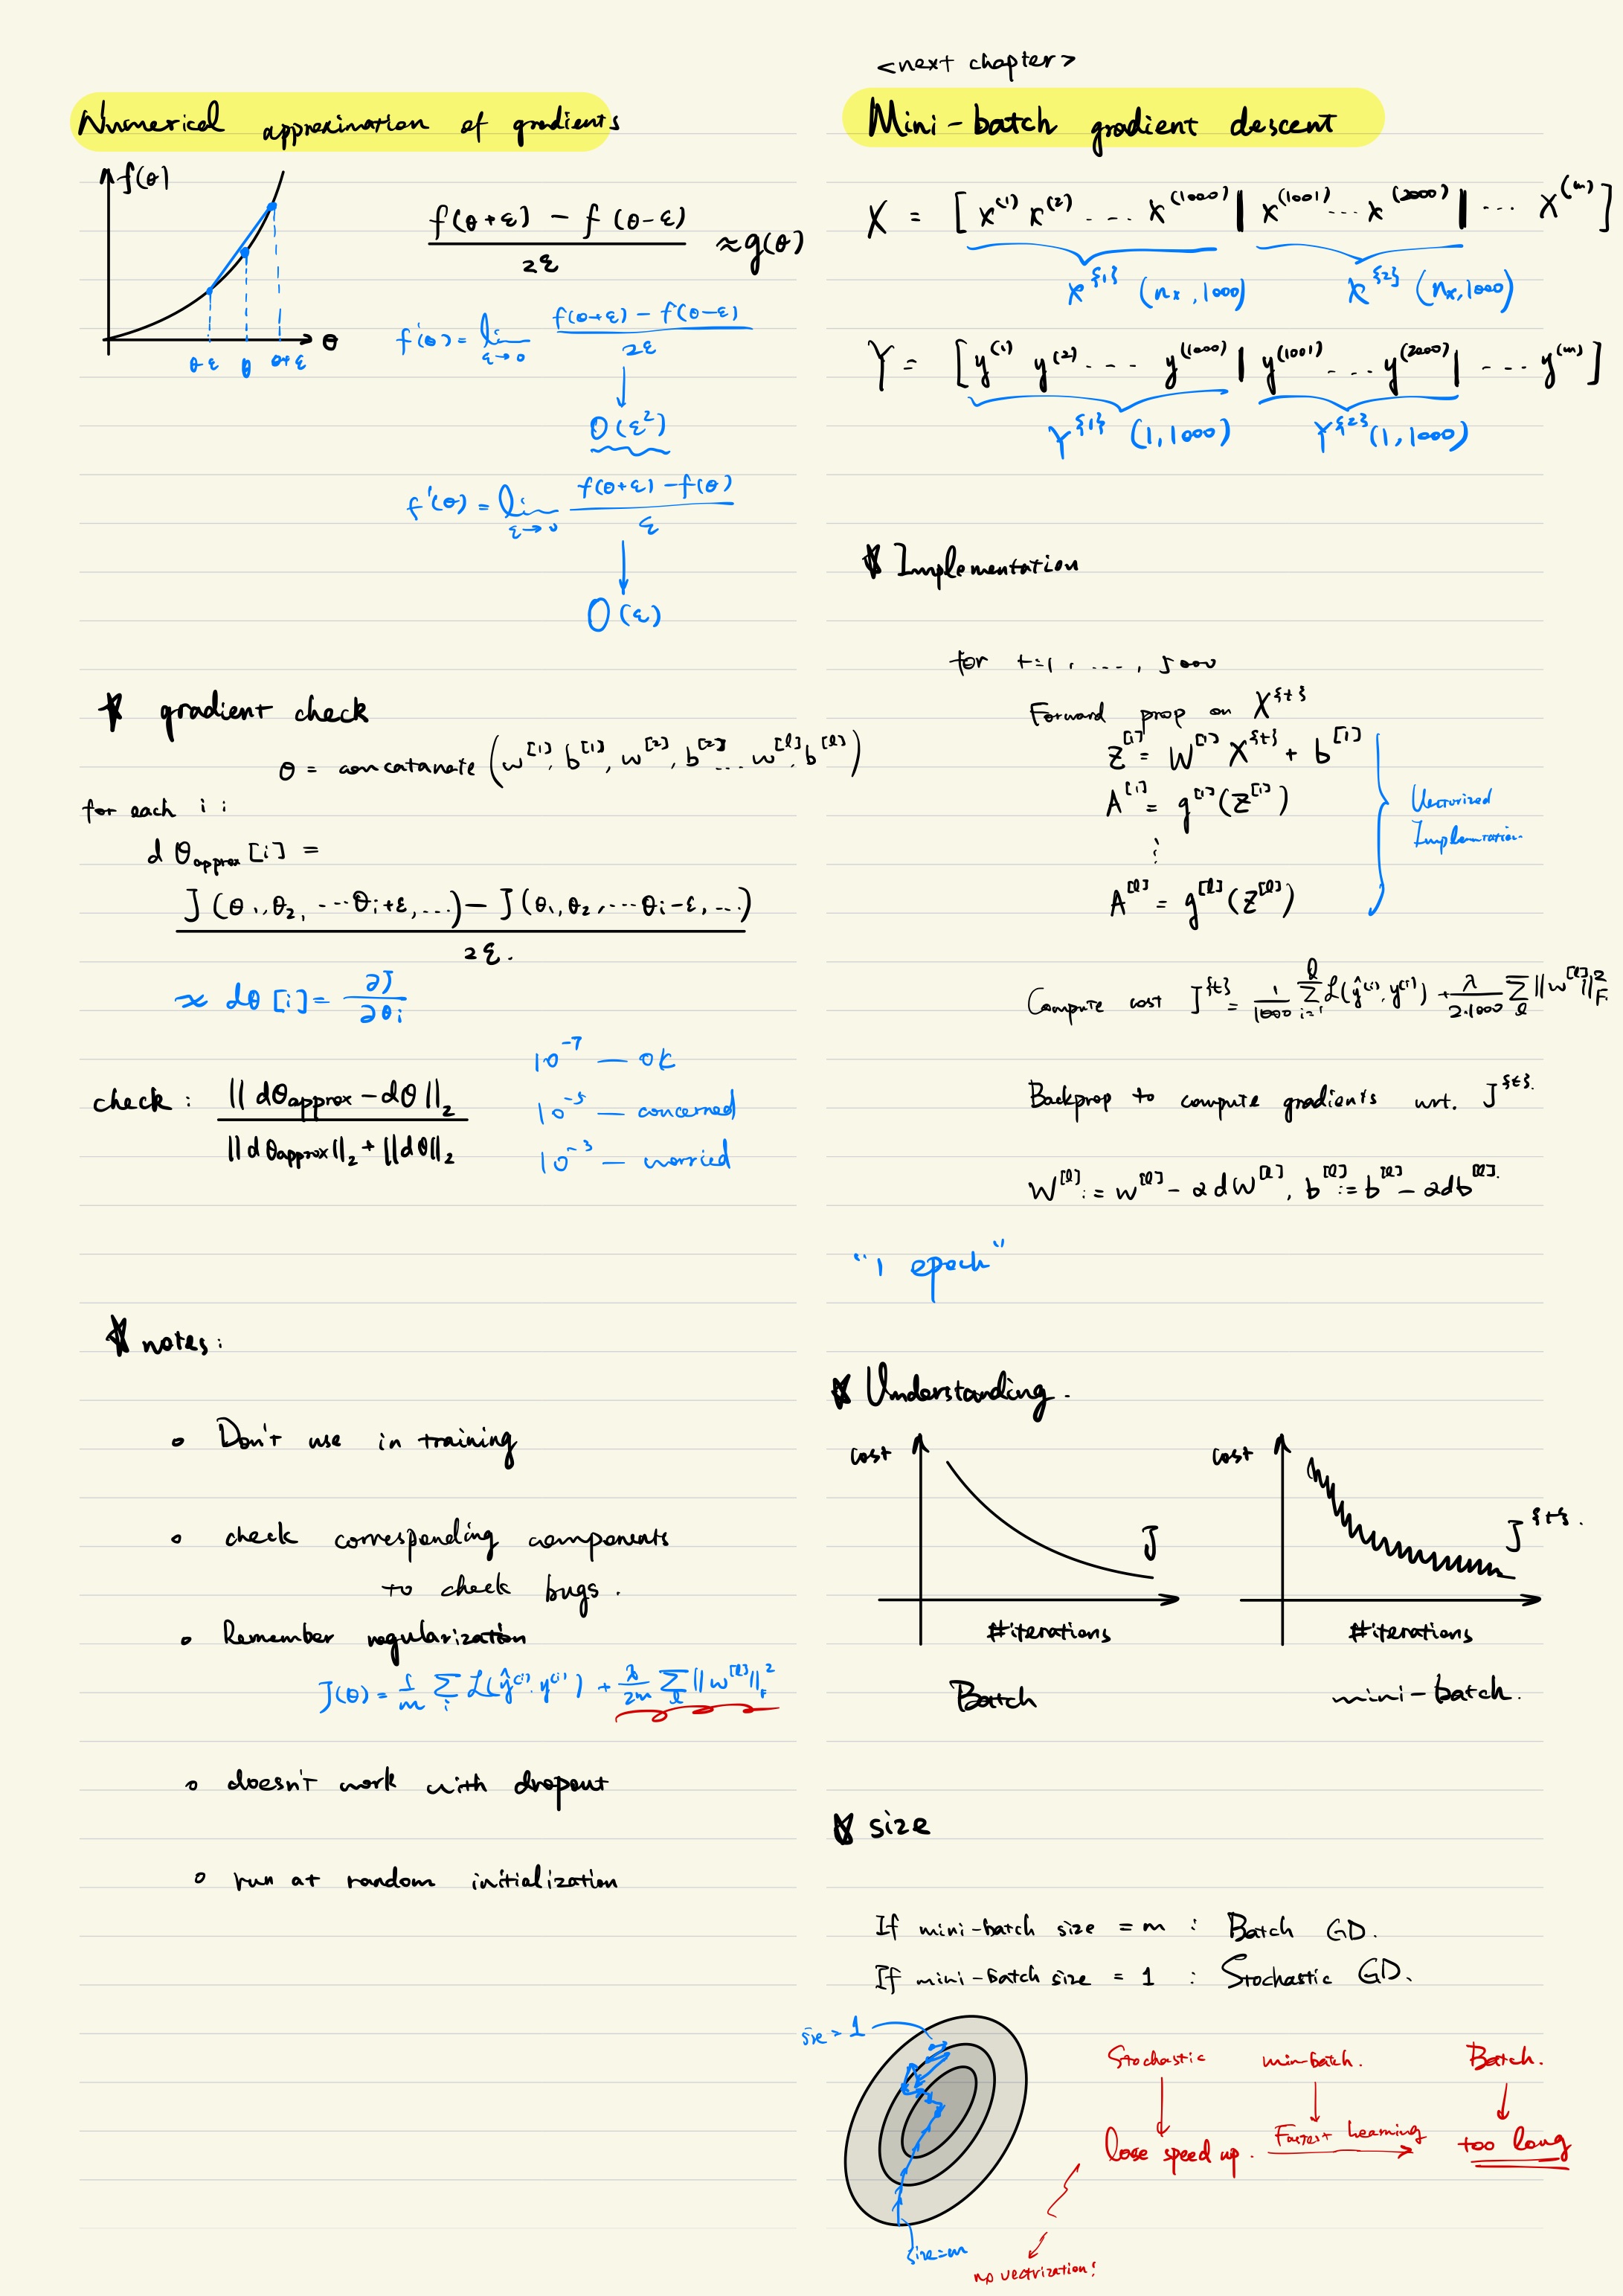 Numerical approximation of gradients
f(θ)
θ
θ-ε θ θ+ε
f(θ+ε) - f(θ-ε) / 2ε ≈ g(θ)
f'(θ) = lim ε→0 f(θ+ε) - f(θ-ε) / 2ε
O(ε²)
f'(θ) = lim ε→0 f(θ+ε) - f(θ) / ε
O(ε)
★ gradient check
θ = concatanate (w^[1], b^[1], w^[2], b^[2] ... w^[l], b^[l])
for each i :
dθapprox[i] =
J(θ1, θ2, ... θi+ε, ...) - J(θ1, θ2, ... θi-ε, ...) / 2ε.
≈ dθ[i] = ∂J / ∂θi
check : ||dθapprox - dθ||₂ / ||dθapprox||₂ + ||dθ||₂
10^-7 — ok
10^-5 — concerned
10^-3 — worried
★ notes:
∘ Don't use in training
∘ check corresponding components
to check bugs.
∘ Remember regularization
J(θ) = 1/m Σ_i L(ŷ^(i), y^(i)) + λ/2m Σ_l ||w^[l]||²_F
∘ doesn't work with dropout
∘ run at random initialization
<next chapter>
Mini-batch gradient descent
X = [x^(1) x^(2) .... x^(1000) | x^(1001) ... x^(2000) | ... x^(m)]
X^{1} (nx, 1000) X^{2} (nx, 1000)
Y = [y^(1) y^(2) .... y^(1000) | y^(1001) ... y^(2000) | .... y^(m)]
Y^{1} (1, 1000) Y^{2} (1, 1000)
★ Implementation
for t=1, ...., 5000
Forward prop on X^{t}
Z^[1] = W^[1] X^{t} + b^[1]
A^[1] = g^[1](Z^[1])
⋮
A^[l] = g^[l](Z^[l])
Vectorized
Implementation
Compute cost J^{t} = 1/1000 Σ_{i=1}^{l} L(ŷ^(i), y^(i)) + λ/2·1000 Σ_l ||w^[l]||²_F
Backprop to compute gradients wrt. J^{t}.
W^[l] := w^[l] - αdW^[l], b^[l] := b^[l] - αdb^[l].
"1 epoch"
★ Understanding.
cost
J
#iterations
Batch
cost
J^{t}.
#iterations
mini-batch.
★ size
If mini-batch size = m : Batch GD.
If mini-batch size = 1 : Stochastic GD.
size = 1
size=m
Stochastic min-batch. Batch.
lose speed up. Fastest learning too long
no vectrization!